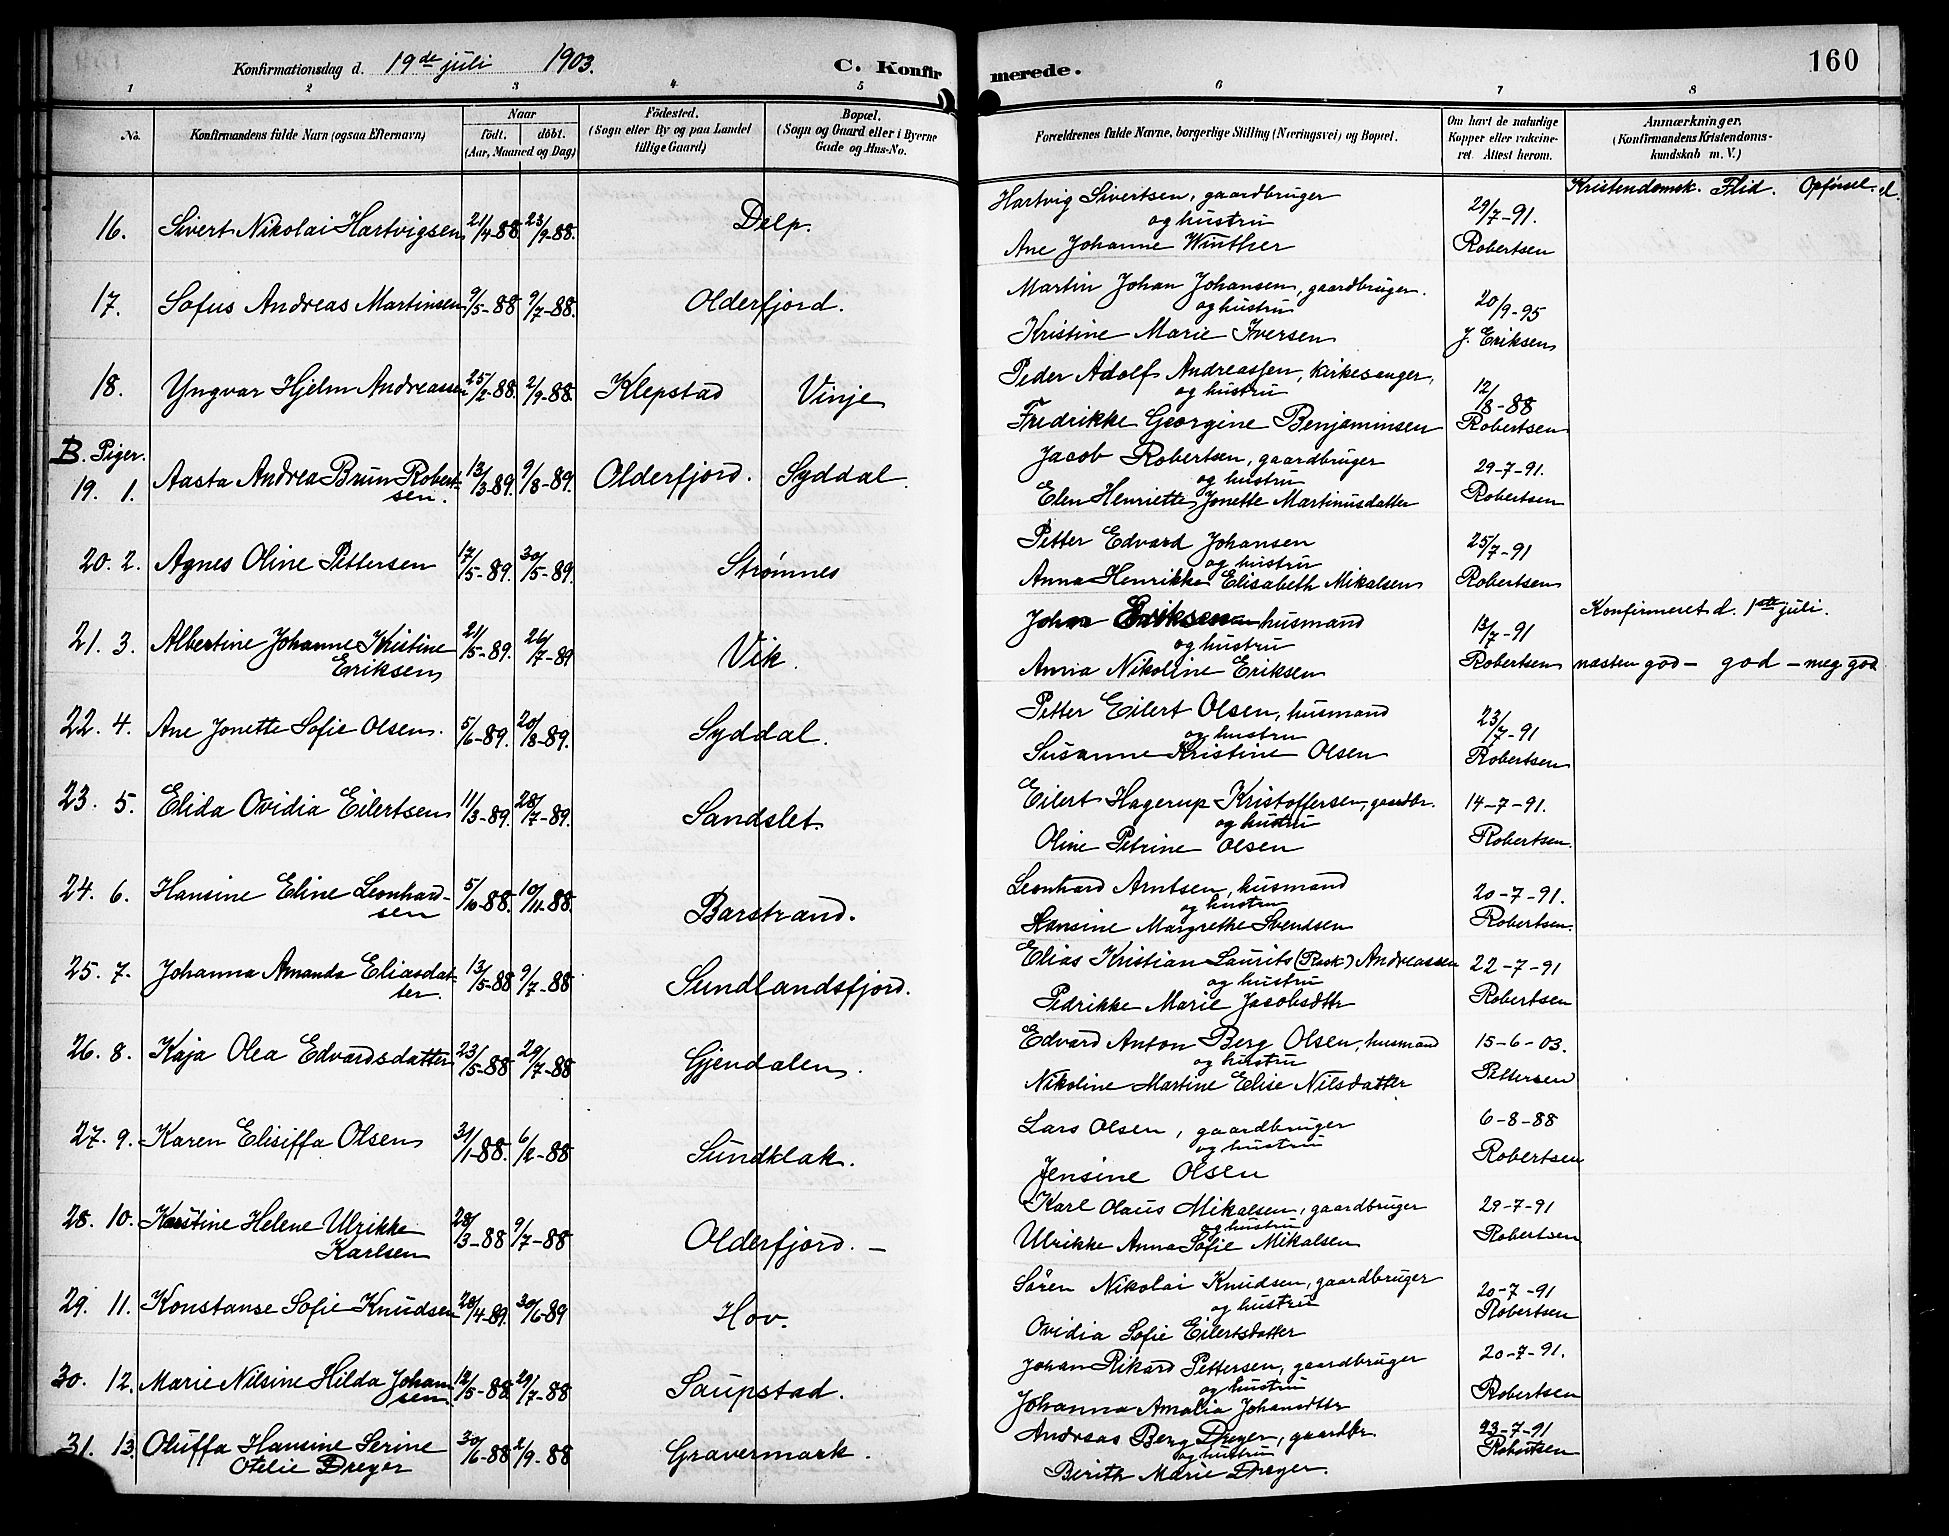 Konfirmationsdag d. 19de juli 1903.
C. Konfirmerede.
160
1 2 3 4 5 6 7 8
No.
Konfirmandens fulde Navn (ogsaa Efternavn)
Naar
født. døbt.
(Aar, Maaned og Dag)
Fødested.
(Sogn eller By og paa Landet
tillige Gaard)
Bopæl.
(Sogn og Gaard eller i Byerne
Gade og Hus-No.
Forældrenes fulde Navne, borgerlige Stilling (Næringsvei) og Bopæl.
Om havt de naturlige
Kopper eller vakcine-
ret. Attest herom.
Anmærkninger.
(Konfirmandens Kristendoms-
kundskab m. V.)
Kristendomsk. Flid. Opførsel.
16. Sivert Nikolai Hartvigsen 21/4-88 23/9-88. Delp.
Hartvig Sivertsen, gaardbruger
og hustru
Ane Johanne Winther
29/7-91.
Robertsen
17. Sofus Andreas Martinsen 9/5-88 9/7-88. Olderfjord.
Martin Johan Johansen, gaardbruger.
og hustru
Kristine Marie Iversen
20/9-95
J. Eriksen
18. Yngvar Hjelm Andreassen 25/2-88. 2/9-88. Klepstad Vinje
Peder Adolf Andreassen, kirkesanger,
og hustru
Fredrikke Georgine Benjaminsen
12/8-88
Robertsen
B. Piger.
19. 1. Aasta Andrea Brun Robert-
sen. 13/3-89. 9/8-89. Olderfjord. Syddal.
Jacob Robertsen, gaardbruger
og hustru
Elen Henriette Jonette Martinusdatter
29-7-91.
Robertsen
20. 2. Agnes Oline Pettersen 17/5-89. 30/5-89. Strømnes
Petter Edvard Johansen
og hustru
Anna Henrikke Elisabeth Mikalsen
25/7-91
Robertsen
21. 3. Albertine Johanne Kristine
Eriksen 21/5-89. 26/7-89 Vik.
Johan Eriksen husmand
og hustru
Anna Nikoline Eriksen
13/7-91
Robertsen
Konfirmeret d. 1ste juli.
næsten god - god - meg god
22. 4. Ane Jonette Sofie Olsen. 5/6-89. 20/8-89. Syddal.
Petter Eilert Olsen, husmand
og hustru
Susanne Kristine Olsen
23/7-91
Robertsen
23. 5. Elida Ovidia Eilertsen 11/3-89. 28/7-89. Sandslet.
Eilert Hagerup Kristoffersen, gaardbr.
og hustru
Oline Petrine Olsen
14-7-91.
Robertsen.
24. 6. Hansine Eline Leonhard-
sen 5/10-88. 10/11-88. Barstrand.
Leonhard Arntsen, husmand
og hustru
Hansine Margrethe Svendsen
20-7-91.
Robertsen.
25. 7. Johanna Amanda Eliasdat-
ter. 13/5-88 9/7-88 Sundlandsfjord.
Elias Kristian Laurits (Rask) Andreassen
og hustru
Pedrikke Marie Jacobsdttr
22-7-91
Robertsen
26. 8. Kaja Olea Edvardsdatter 23/5-88 29/7-88 Gjendalen.
Edvard Anton Berg Olsen, husmand
og hustru
Nikoline Martine Elise Nilsdatter
15-6-03.
Pettersen
27. 9. Karen Elisiffa Olsen 31/1-88. 6/2-88 Sundklak.
Lars Olsen, gaardbruger
og hustru
Jensine Olsen
6-8-88
Robertsen
28. 10. Kristine Helene Ulrikke
Karlsen 28/3-88 9/7-88 Olderfjord. -
Karl Olaus Mikalsen, gaardbruger
og hustru
Ulrikke Anna Sofie Mikalsen
29-7-91
Robertsen
29. 11. Konstanse Sofie Knudsen 28/4-89. 30/6-89 Hov.
Søren Nikolai Knudsen, gaardbruger
og hustru
Ovidia Sofie Eilertsdatter
20-7-91
Robertsen
30. 12. Marie Nilsine Hilda Johan-
sen 12/5-88. 29/7-88 Saupstad.
Johan Rikard Pettersen, gaardbruger
og hustru
Johanna Amalia Johansdttr
20-7-91.
Robertsen
31. 13. Oluffa Hansine Serine
Otelie Dreyer 30/6-88 2/9-88 Gravermark.
Andreas Berg Dreyer, gaardbr
og hustru
Berith Marie Dreyer.
23-7-91
Robertsen